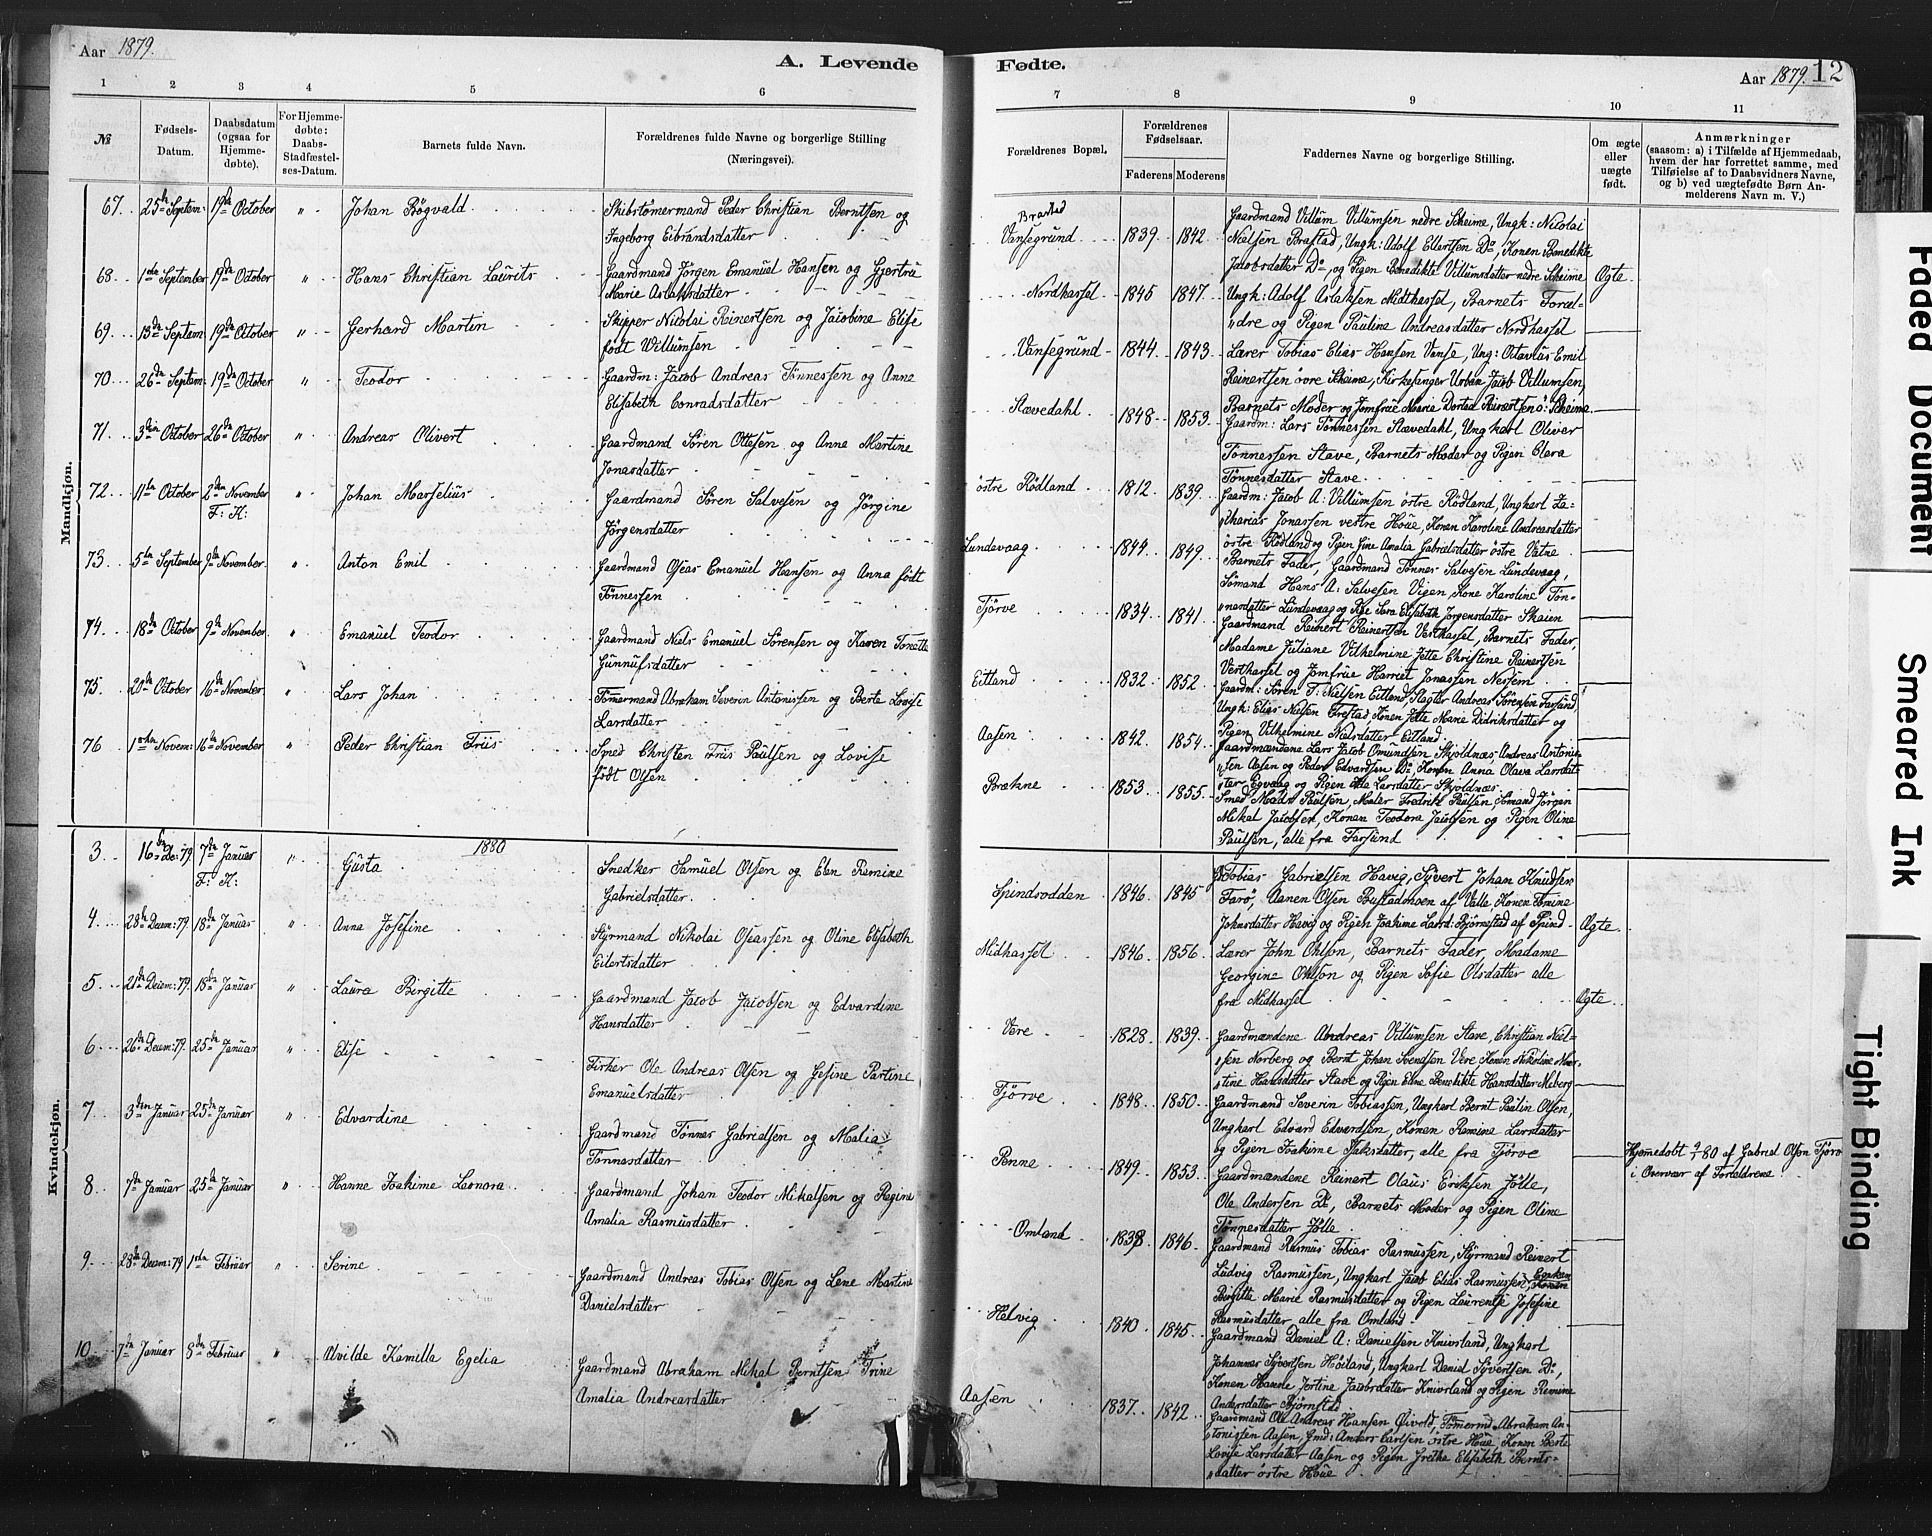 Aar 1879.
A. Levende
1 2 3 4 5 6
№
Fødsels-
Datum.
Daabsdatum
(ogsaa for
Hjemme-
døbte).
For Hjemme-
døbte:
Daabs-
Stadfæstel-
ses-Datum.
Barnets fulde Navn.
Forældrenes fulde Navne og borgerlige Stilling
(Næringsvei).
Mandkjøn.
67. 25de Septem: 19de October " Johan Rögvald Skibstømermand Peder Christian Berntsen og
Ingeborg Eibrandsdatter
68 1ste September 19de October " Hans Christian Laurits Gaardmand Jörgen Emanuel Hansen og Gjertru
Marie Aslaksdatter
69. 13de Septem 19de October " Gerhard Martin Skipper Nicolai Reinertsen og Jacobine Elise
födt Willumsen
70 26de Septem: 19de October " Teodor Gaardm: Jacob Andreas Tönnessen og Anne
Elisabeth Conradsdatter
71 3die October 26de October " Andreas Olivert Gaardmand Sören Ottesen og Anne Martine
Jonasdatter
72 11te October 2den November " Johan Marselius Gaardmand Sören Salvesen og Jörgine
F: K:
Jörgensdatter
73 5te September 9de November " Anton Emil Gaardmand Oseas Emanuel Hansen og Anna födt
Tönnessen
74 18de October 9de November " Emanuel Teodor Gaardmand Niels Emanuel Sörensen og Karen Tonette
Gunnufsdatter
75. 20de October 16de November " Lars Johan Tömermand Abraham Severin Antonissen og Berte Lovise
Larsdatter
76 1ste Novem: 16de November " Peder Christian Friis Smed Christen Friis Paulsen og Lovise
födt Olsen
Kvindekjøn.
1880
3 16de De: 79. 7de Januar " Gusta Snedker Samuel Olsen og Elen Remine
F: K:
Gabrielsdatter
4 28de Decem: 79. 18de Januar " Anna Josefine Styrmand Nikolai Oseassen og Oline Elisabeth
Eilertsdatter
5 21de Decem: 79. 18de Januar " Laura Birgitte Gaardmand Jacob Jacobsen og Edvardine
Hansdatter
6 26de Decem: 79. 25de Januar " Elise Fisker Ole Andreas Olsen og Gesine Partine
Emanuelsdatter
7 3die Januar 25de Januar " Edvardine Gaardmand Tönnes Gabrielsen og Malia
Tönnesdatter
8 7de Januar 25de Januar " Hanne Joakime Leonora Gaardmand Johan Teodor Mikalsen og Regine
Amalia Rasmusdatter
9 28de Decem: 79 1ste Februar " Serine Gaardmand Andreas Tobias Olsen og Lene Martine
Danielsdatter
10 7de Januar 8de Februar " Alvilde Kamilla Egelia Gaardmand Abraham Mikal Berntsen Trine
Amalia Andreasdatter
Fødte.
Aar 1879. 12
7 8 9 10 11
Forældrenes Bopæl.
Forældrenes
Fødselsaar.
Faderens Moderens
Faddernes Navne og borgerlige Stilling.
Om ægte
eller
uægte
født.
Anmærkninger
(saasom: a) i Tilfælde af Hjemmedaab,
hvem der har forrettet samme, med
Tilføielse af to Daabsvidners Navne,
og b) ved uægtefødte Børn An-
melderens Navn m. V.)
Brastad
Vansegrund 1839 1842 Gaardmand Villum Villumsen nedre Skeime, Ungk: Nicolai
Nielsen Brastad, Ungk: Adolf Ellertsen Do, Konen Benedikte
Jacobsdatter Do, og Pigen Benedikte Villumsdatter nedre Skeime Ægte
Nordhassel 1845 1847 Ungk: Adolf Aslaksen Midthassel, Barnets Foræl-
dre og Pigen Pauline Andreasdatter Nordhassel
Vansegrund 1844 1843 Lærer Tobias Elias Hansen Vanse, Ung: Otavius Emil
Reinertsen övre Skeime, Kirkesanger Urban Jacob Villumsen,
Barnets Moder og Jomfrue Marie Dortea Reinertsen ö: Skeime
Stavedahl 1848 1853 Gaardm: Lars Tönnessen Stavedahl, Ungkarl Oliver
Tönnessen Stave, Barnets Moder og Pigen Clara
Tönnesdatter Stave
östre Rödland 1812 1839 Gaardm: Jacob A: Villumsen östre Rödland, Ungkarl Za-
charias Jonassen vestre Houe, Konen Karoline Andreasdatter
östre Rödland og Pigen Sine Amalia Gabrielsdatter östre Vatne
Lundevaag 1844 1849 Barnets Fader, Gaardmand Tönnes Salvesen Lundevaag,
Sömand Hans A: Salvesen Vigen, Kone Karoline Tön-
nesdatter Lundevaag og Pige Sara Elisabeth Jörgensdatter Skaien
Tjörve 1834 1841 Gaardmand Reinert Reinertsen Vesthassel, Barnets Fader,
Madame Juliane Vilhelmine Jette Christine Reinertsen
Vesthassel og Jomfrue Harriet Jonassen Nesheim
Eitland 1832 1852 Gaardm: Sören T: Nielsen Eitland, Slagter Andreas Sörensen Farsund
Ungk: Elias Nielsen Frestad, Konen Jette Marie Didriksdatter og
Pigen Vilhelmine Nielsdatter Eitland
Aasen 1842 1854 Gaardmændene Lars Jacob Omundsen Skjoldnæs, Andreas Antonis-
sen Aasen og Peder Edvardsen Do, Konen Anna Olava Larsdat-
ter Egvaag og Pigen Larsdatter Skjoldnæs
Brækne 1853 1855 Smed Mads Paulsen, Maler Fredrik Paulsen, Sömand Jörgen
Mikal Jacobsen, Konen Teodora Jacobsen og Pigen Oline
Paulsen, alle fra Farsund
Spindsodden 1846 1845 Tobias Gabrielsen Havig, Syvert Johan Knudsen
Farö, Aanen Olsen Bustadmoen af Valle, Konen Tomine
Johnsdatter Havig og Pigen Joakime Larsd: Björnestad af Spind Ægte
Midhassel 1846 1856 Lærer John Ohlson, Barnets Fader, Madame
Georgine Ohlson og Pigen Sofie Olsdatter alle
fra Midhassel Ægte
Vere 1828 1839 Gaardmændene Andreas Villumsen Stave, Christian Niel-
sen Norberg og Bernt Johan Svendsen Vere, Konen Nikoline Mar-
tine Hansdatter Stave og Pigen Eline Benedikte Hansdatter Meberg
Tjörve 1848 1850 Gaardmand Severin Tobiassen, Ungkarl Bernt Paulin Olsen,
Ungkarl Edvard Edvardsen, Konen Remine Larsdatter
og Pigen Joakime Isaksdatter, alle fra Tjörve
Hjemedöbt 9/1 80 af Gabriel Olsen Tjörve
i Overvær af Forældrene
Penne 1849 1853 Gaardmændene Reinert Olaus Eriksen Jölle,
Ole Andersen Do, Barnets Moder og Pigen Oline
Tönnesdatter Jölle
Omland 1838 1846 Gaardmand Rasmus Tobias Rasmussen, Styrmand Reinert
Ludvig Rasmussen, Ungkarl Jacob Elias Rasmussen, Enken
Birgitte Marie Rasmusdatter og Pigen Laurentse Josefine
Rasmusdatter alle fra Omland
Helvig 1840 1845 Gaardmand Daniel A: Danielsen Knivsland, Ungkarl
Johannes Syvertsen Höiland, Ungkarl Daniel Syvertsen Do,
Konen Hanne Jertine Jacobsdatter Knivsland og Pigen Remine
Andersdatter Björnstad
Aasen 1837 1842 Gaardmand Ole Andreas Hansen Öivold, Tömermd Abraham An-
tonissen Aasen, Gmd: Anders Carlsen östre Houe, Konen Berte
Lovise Larsdatter Aasen og Pigen Grethe Elisabeth Bernts-
datter östre Houe
Faded Document
Smeared Ink
Tight Binding